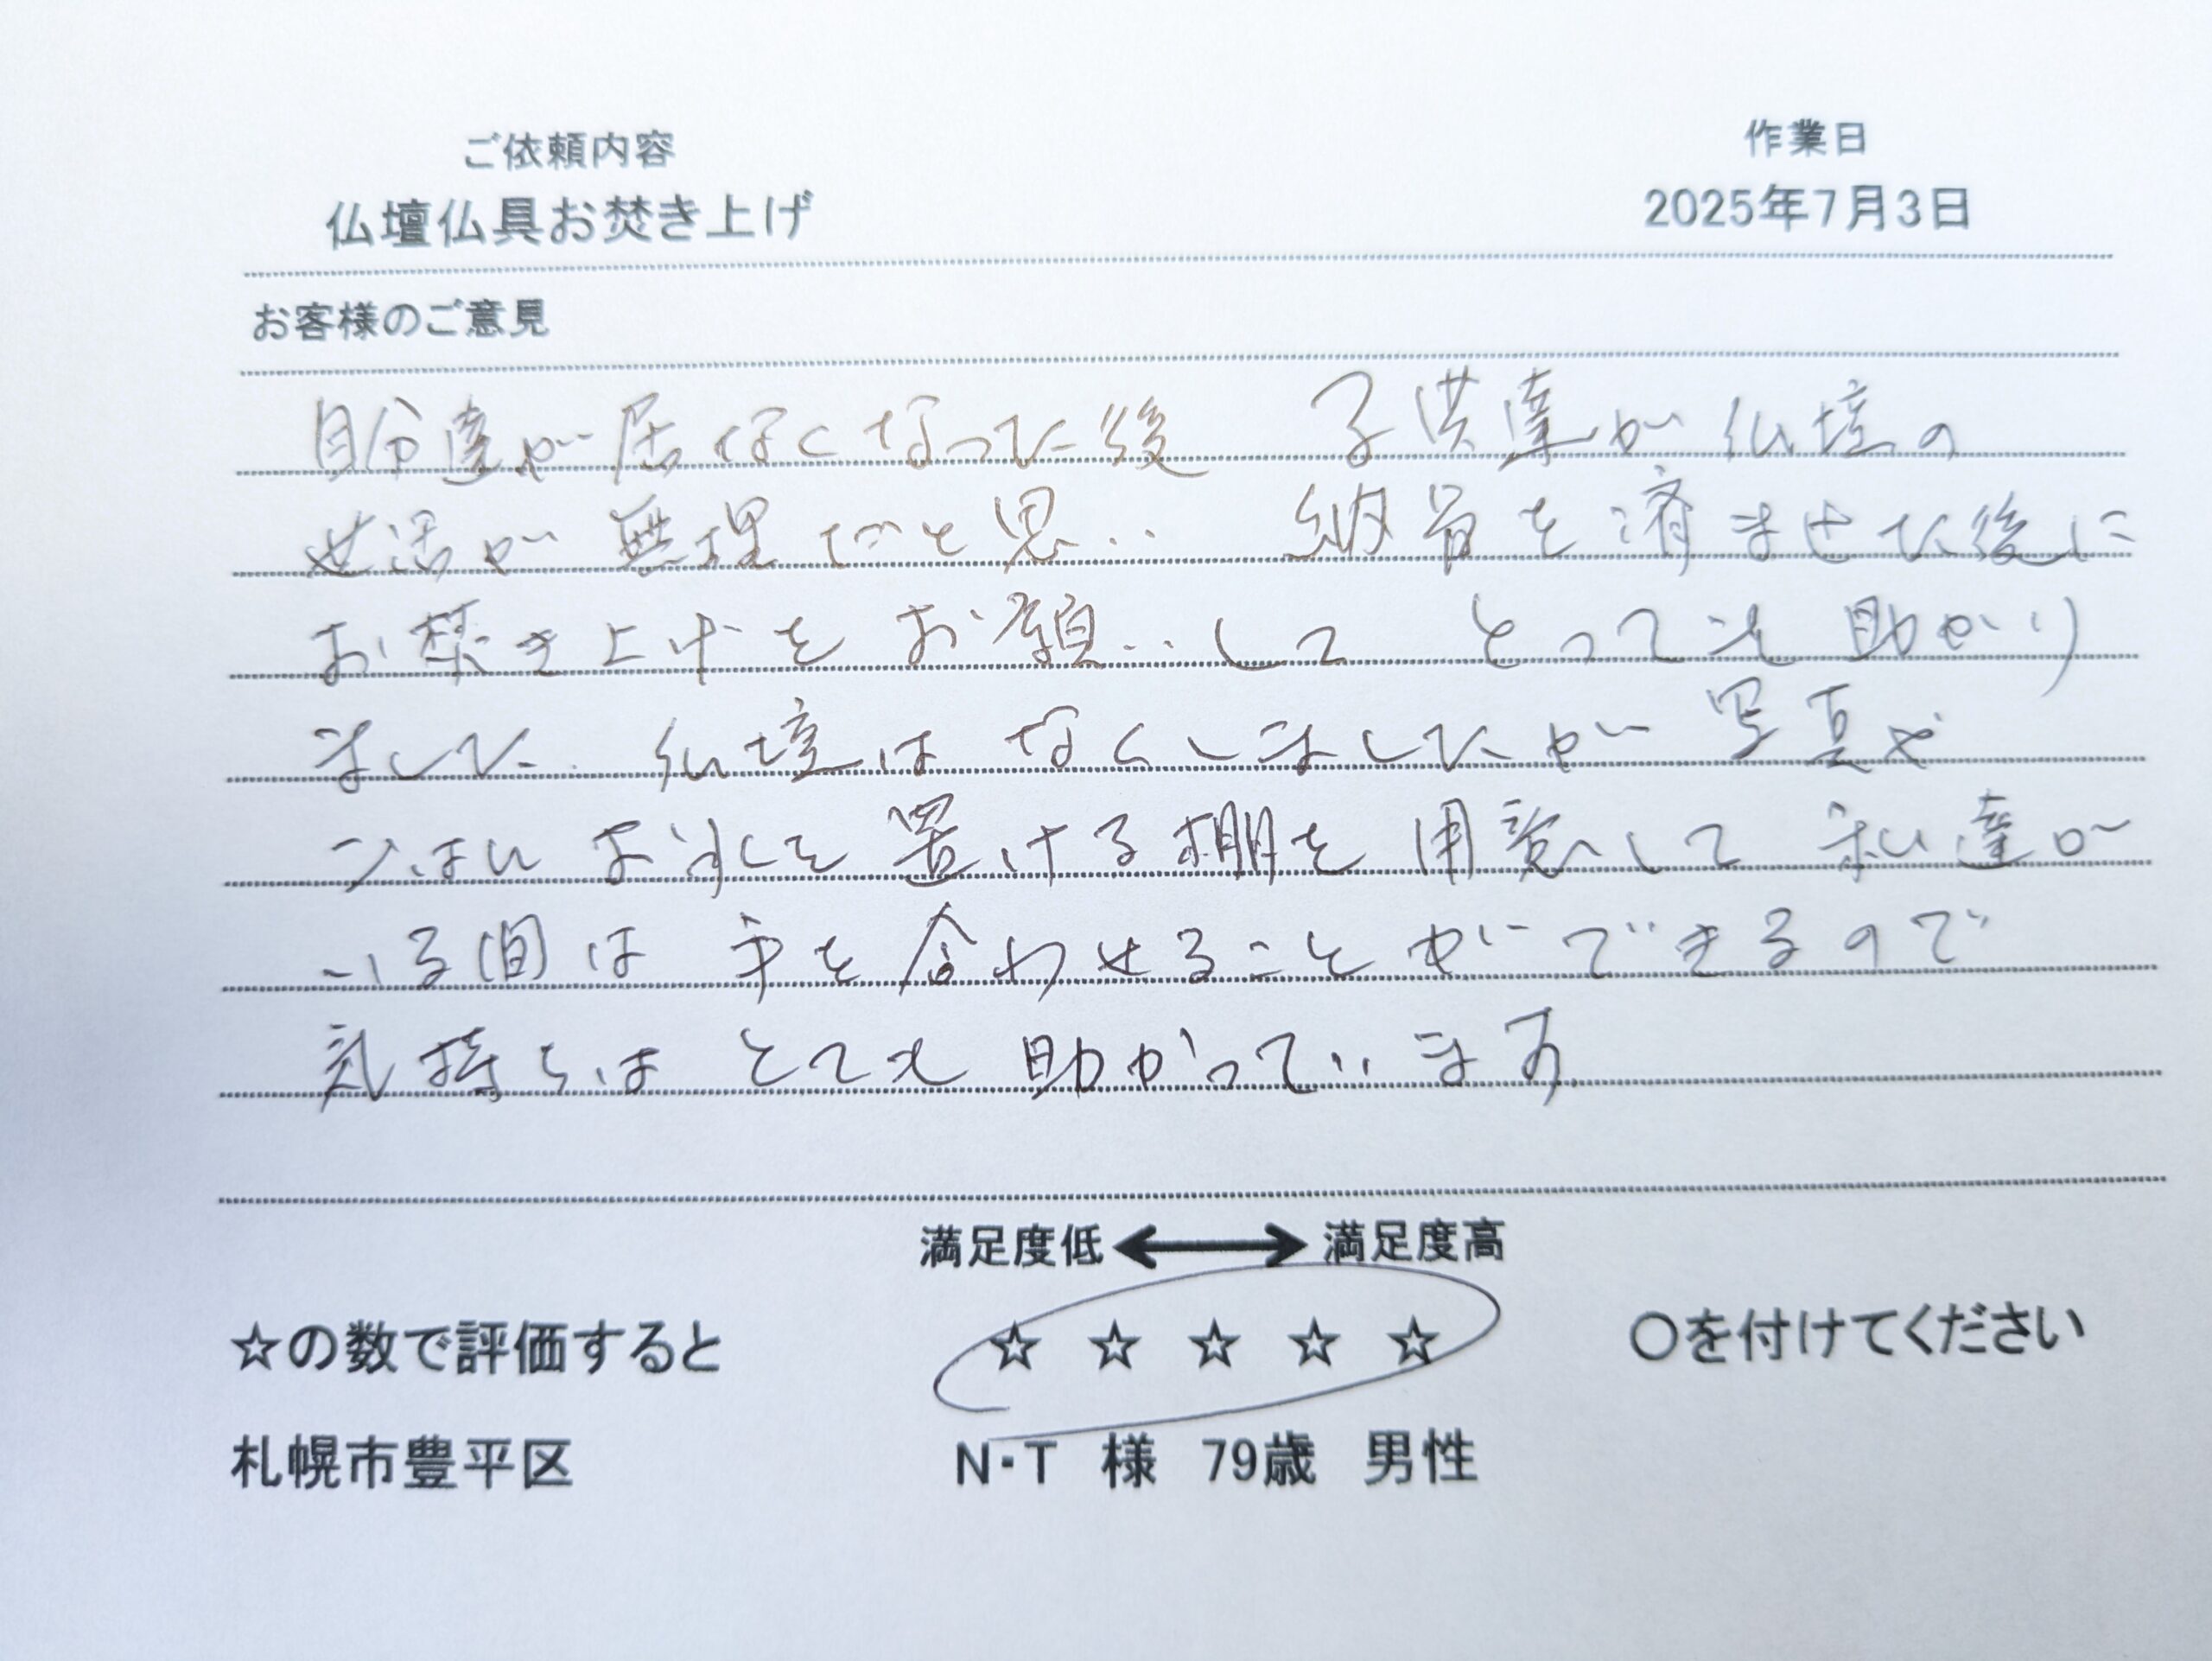 ご依頼内容
作業日
仏壇仏具お焚き上げ
2025年7月3日
お客様のご意見
自分達が居なくなった後 子供達が仏壇の
世話が無理だと思い 納骨を済ませた後に
お焚き上げをお願いして とっても助かり
ました 仏壇はなくしましたが 写真や
ごはん お水を置ける棚を用意して 私達が
いる間は 手を合わせることができるので
気持ちは とても 助かっています
満足度低 ⟷ 満足度高
☆の数で評価すると ☆ ☆ ☆ ☆ ☆ 〇を付けてください
札幌市豊平区 N・T 様 79歳 男性